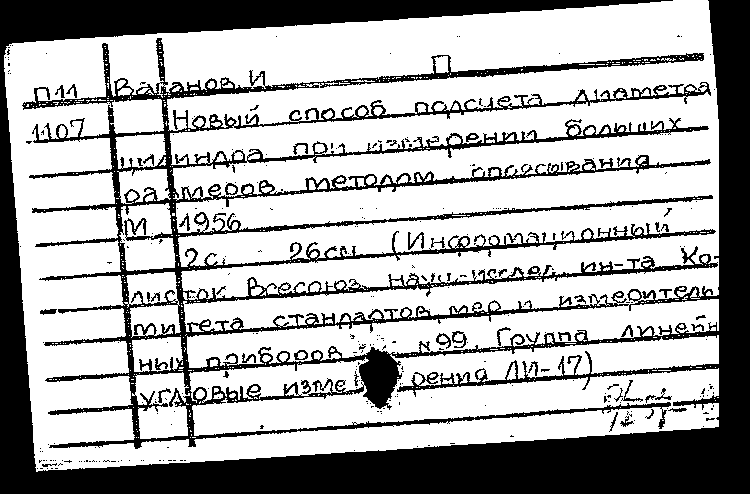 П
П11 Ваганов, И
1107 Новый способ подсчета диаметра
цилиндра при измерении больших
размеров методом опоясывания.
М., 1956
2с. 26см (Информационный
листок Всесоюз. науч.-исслед. ин-та Ко-
митета стандартов, мер и измеритель-
ных приборов №99. Группа линейн
угловые измерения ЛИ-17)